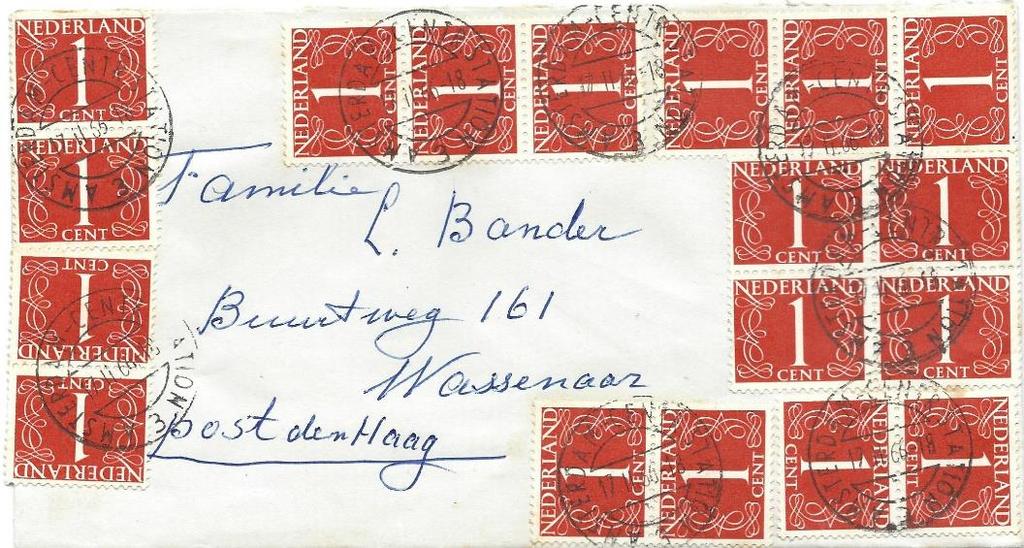 NEDERLAND 1 CENT
NEDERLAND 1 CENT
NEDERLAND 1 CENT
NEDERLAND 1 CENT
NEDERLAND 1 CENT
NEDERLAND 1 CENT
NEDERLAND 1 CENT
NEDERLAND 1 CENT
NEDERLAND 1 CENT
NEDERLAND 1 CENT
NEDERLAND 1 CENT
NEDERLAND 1 CENT
NEDERLAND 1 CENT
NEDERLAND 1 CENT
Familie
L. Bander
Buurtweg 161
Wassenaar
post den Haag
NEDERLAND 1 CENT
NEDERLAND 1 CENT
NEDERLAND 1 CENT
NEDERLAND 1 CENT
AMSTERDAM CENTRAAL STATION